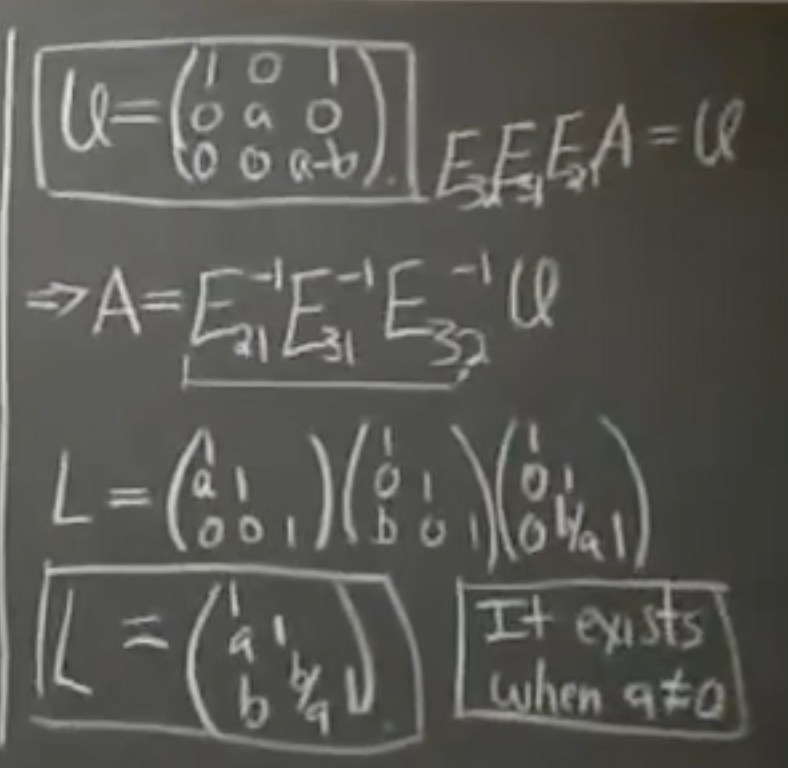 U = (1 0 1
0 a 0
0 0 a-b).
E₃₂E₃₁E₂₁A = U
⇒ A = E₂₁⁻¹E₃₁⁻¹E₃₂⁻¹U
L = (1
a 1
0 0 1)(1
0 1
b 0 1)(1
0 1
0 b/a 1)
L = (1
a 1
b b/a 1).
It exists
when a≠0